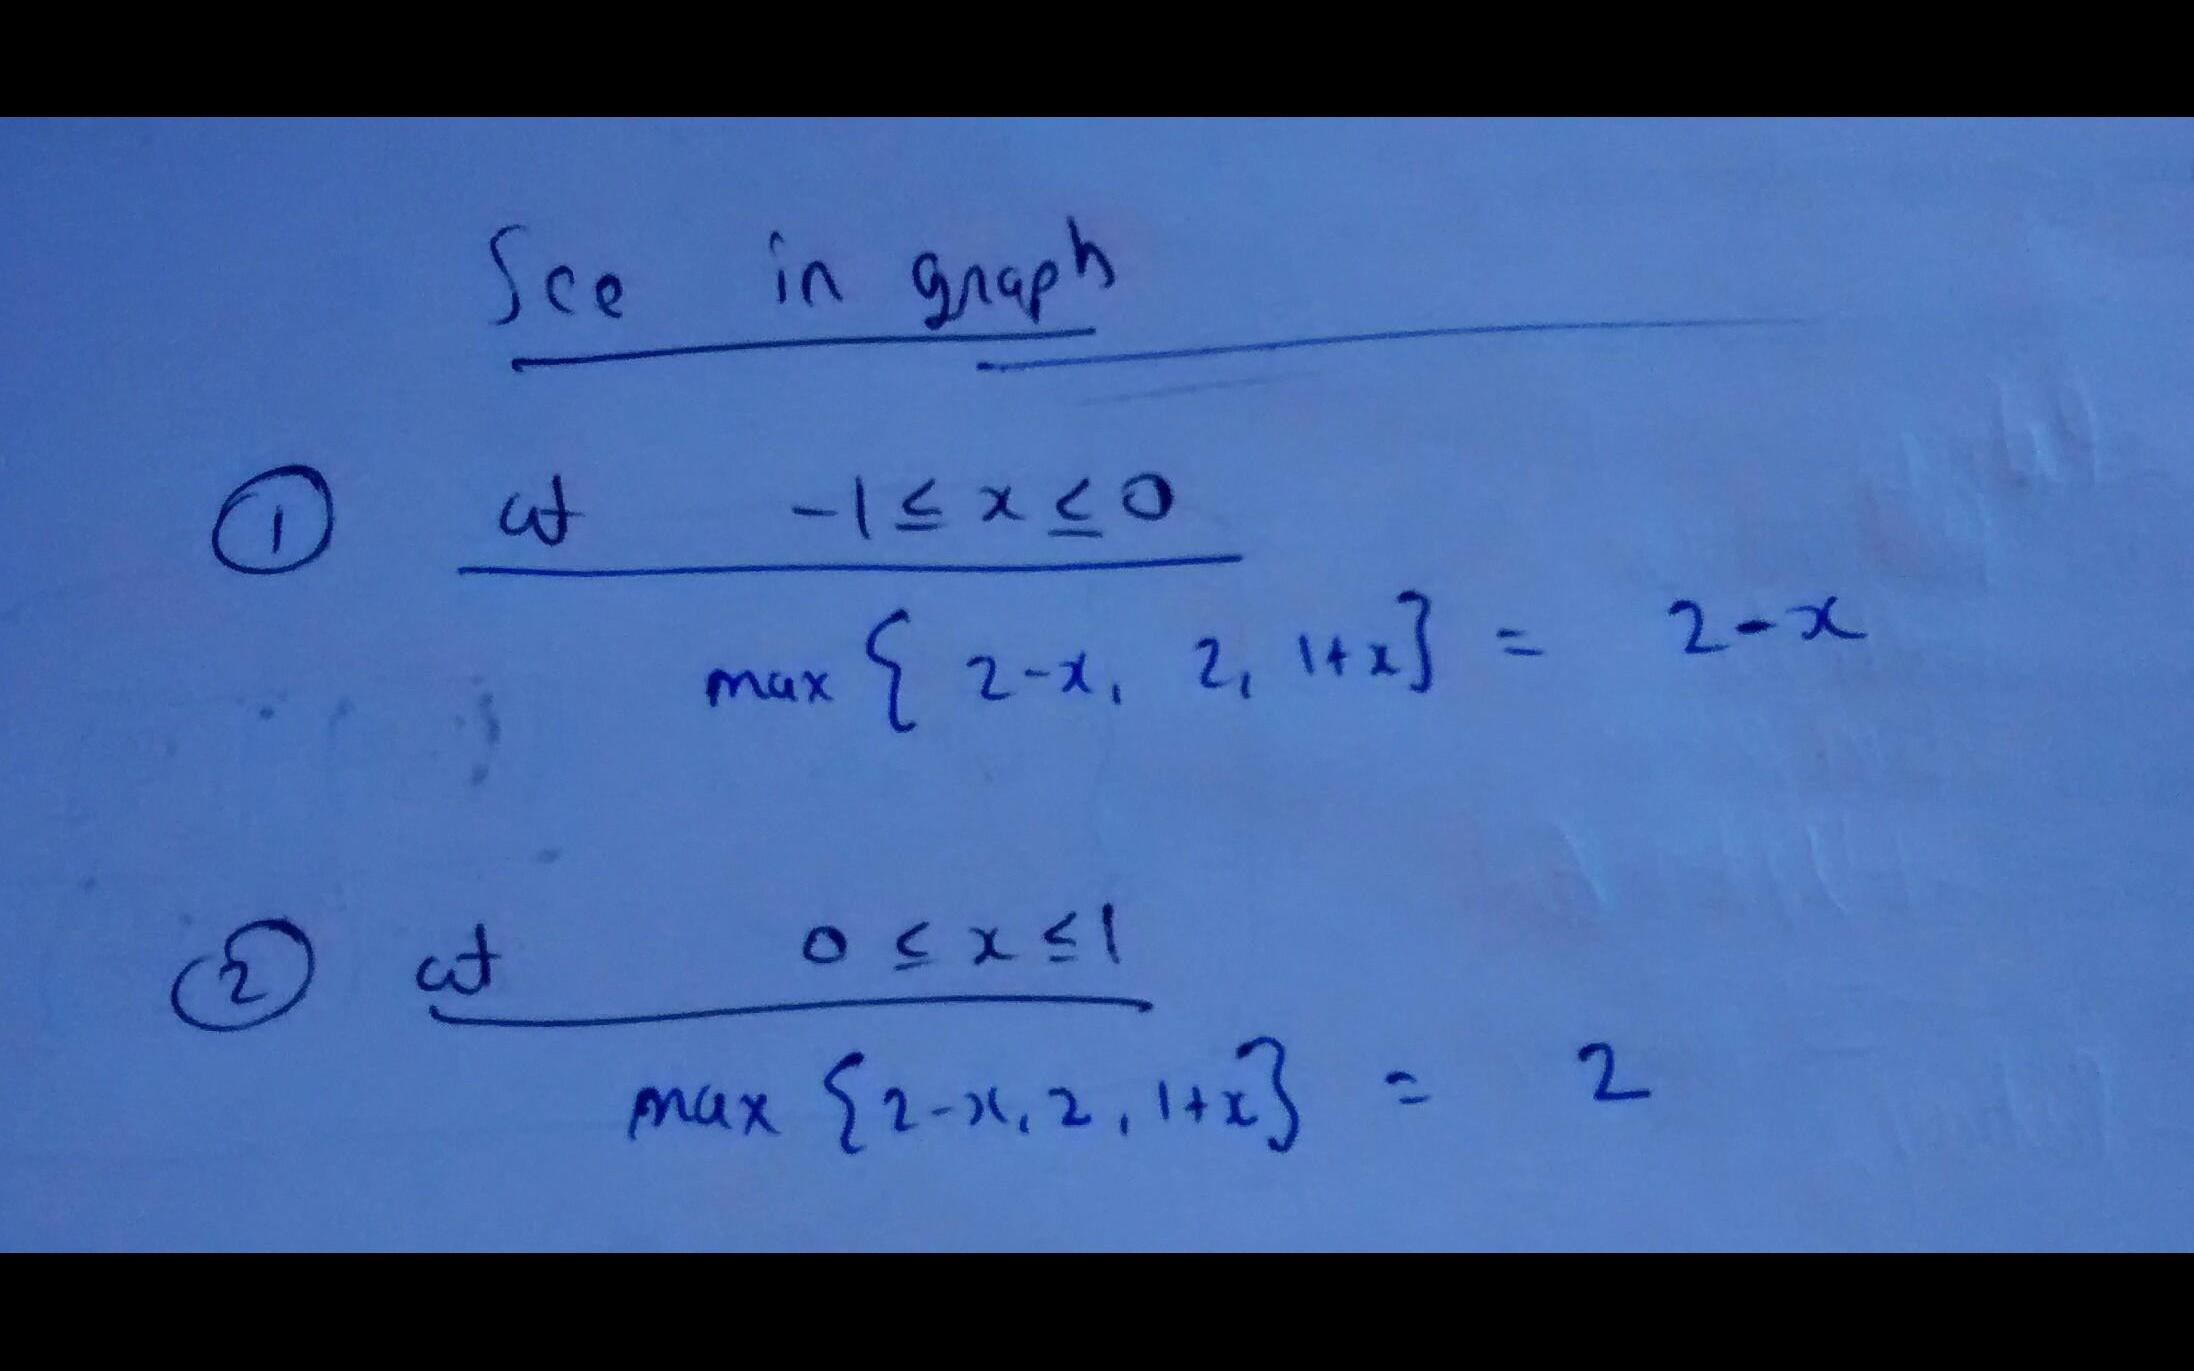 See in graph
① at -1 ≤ x ≤ 0
max { 2-x, 2, 1+x } = 2-x
② at 0 ≤ x ≤ 1
max { 2-x, 2, 1+x } = 2